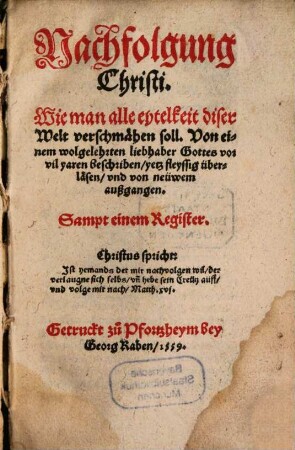 Nachfolgung
Christi.
Wie man alle eytelkeit diser
Welt verschmåhen soll. Von ei-
nem wolgelehrten liebhaber Gottes vor
vil yaren beschriben/yetz fleyssig über-
låsen/vnd von neüwem
außgangen.
Sampt einem Register.
Christus spricht:
Ist yemands der mir nachvolgen wil/der
verlaugne sich selbs/vñ hebe sein Creütz auff/
vnd volge mir nach/Matth. xvj.
Getruckt zů Pfortzheym bey
Georg Raben/1559.
Bayerische
Staatsbibliothek
München